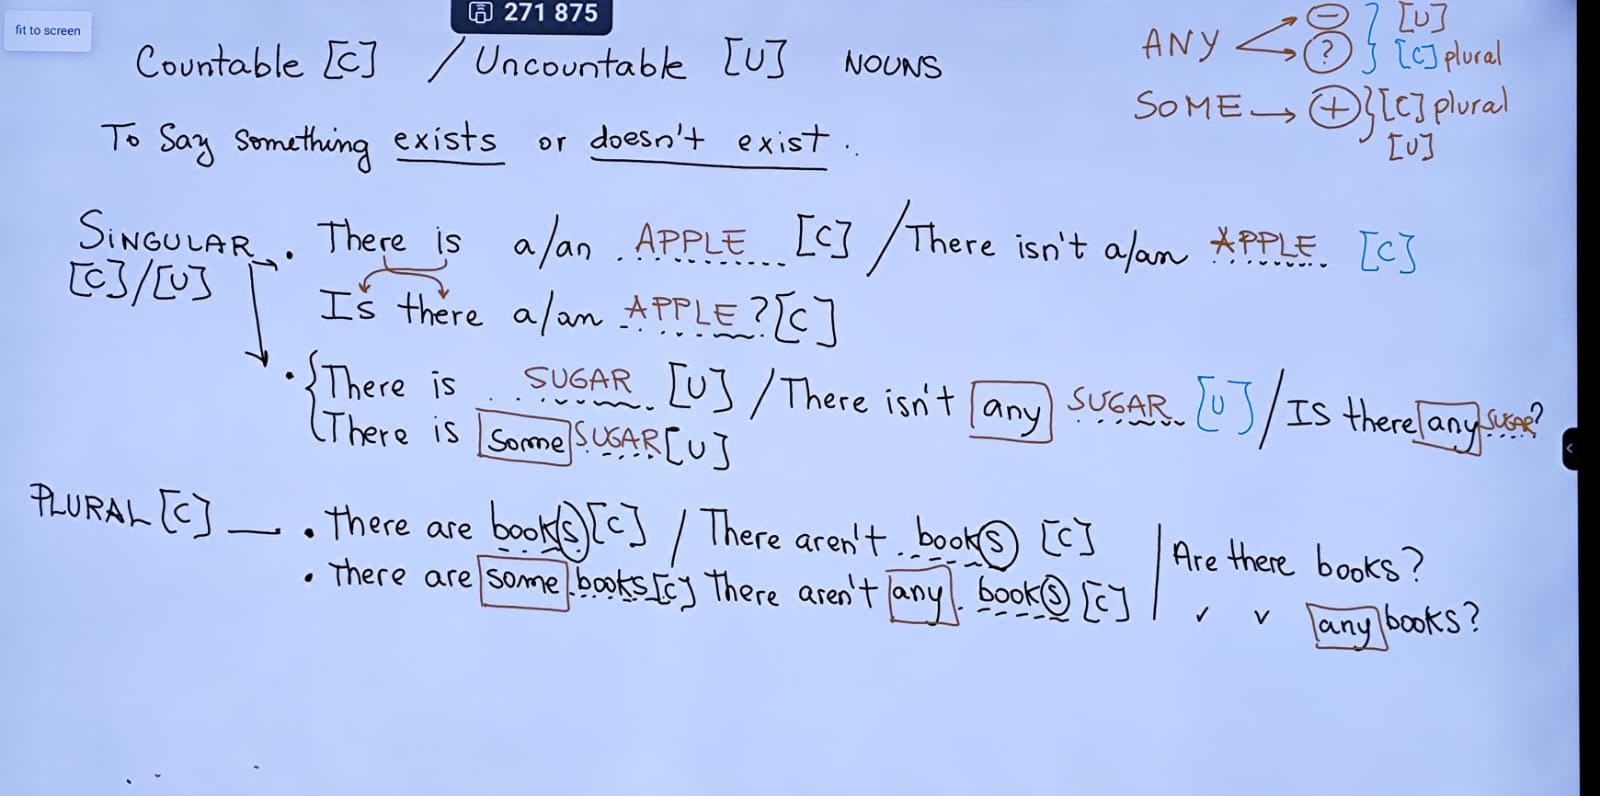 fit to screen
271 875
Countable [C] / Uncountable [U] NOUNS
ANY - ? } [U] [C] plural
SOME → + } [C] plural [U]
To Say something exists or doesn't exist..
SINGULAR [C]/[U]
• There is a/an APPLE [C] / There isn't a/an APPLE [C]
Is there a/an APPLE? [C]
• { There is SUGAR [U] / There isn't any SUGAR [U] / IS there any SUGAR?
There is some SUGAR [U]
PLURAL [C] — • There are books [C] / There aren't books [C] | Are there books?
• There are some books [C] There aren't any books [C] | ✓ v any books?